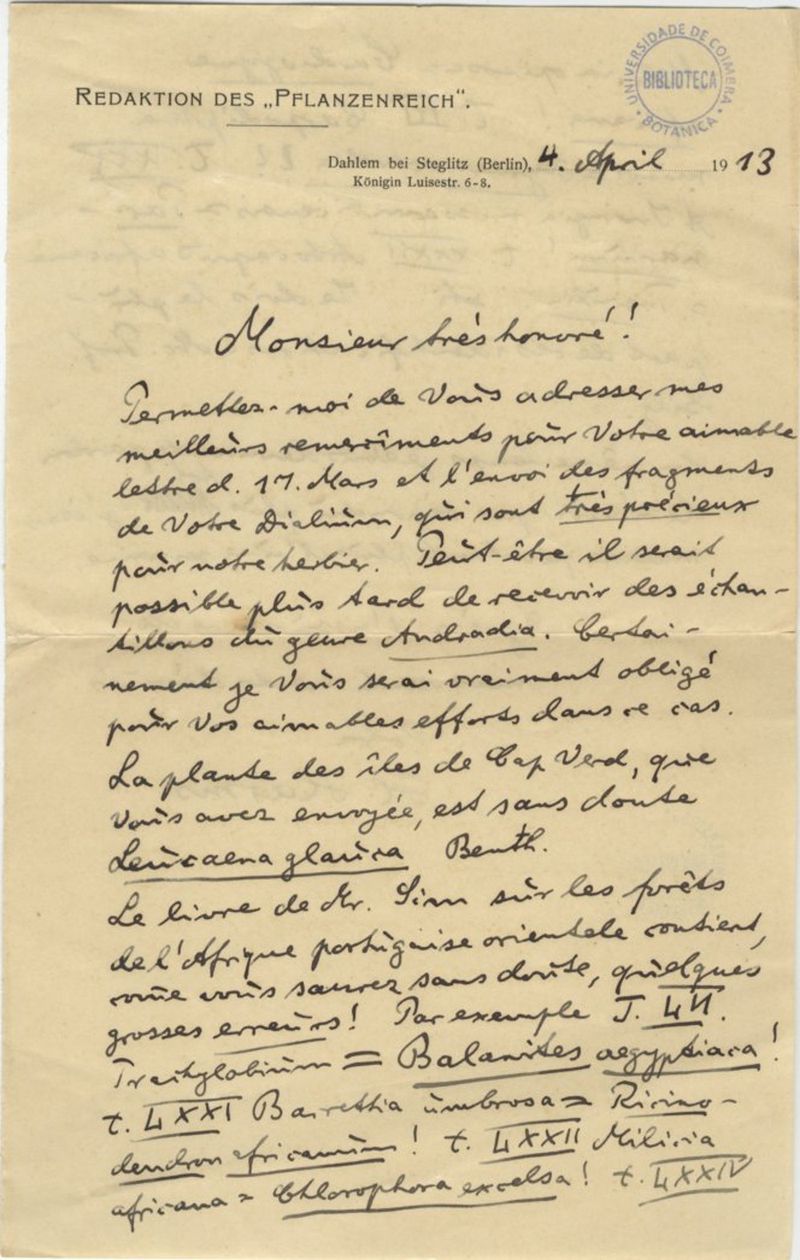 REDAKTION DES „PFLANZENREICH“.
UNIVERSIDADE DE COIMBRA
BIBLIOTECA
BOTANICA
Dahlem bei Steglitz (Berlin), 4. April 1913
Königin Luisestr. 6-8.
Monsieur très honoré!
Permettez-moi de Vous adresser mes
meilleurs remercîments pour Votre aimable
lettre d. 17. Mars et l'envoi des fragments
de Votre Dialium, qui sont très précieux
pour notre herbier. Peut-être il serait
possible plus tard de recevoir des échan-
tillons du genre Andradia. Certai-
nement je Vous serai vraiment obligé
pour Vos aimables efforts dans ce cas.
La plante des îles de Cap Verd, que
Vous avez envoyée, est sans doute
Leucaena glauca Benth.
Le livre de Mr. Sim sur les forêts
de l'Afrique portugaise orientale contient,
come vous saurez sans doute, quelques
grosses erreurs! Par exemple T. LII.
Trachylobium = Balanites aegyptiaca!
t. LXXI Bairettia umbrosa = Ricino-
dendron africanum! t. LXXII Milicia
africana = Chlorophora excelsa! t. LXXIV